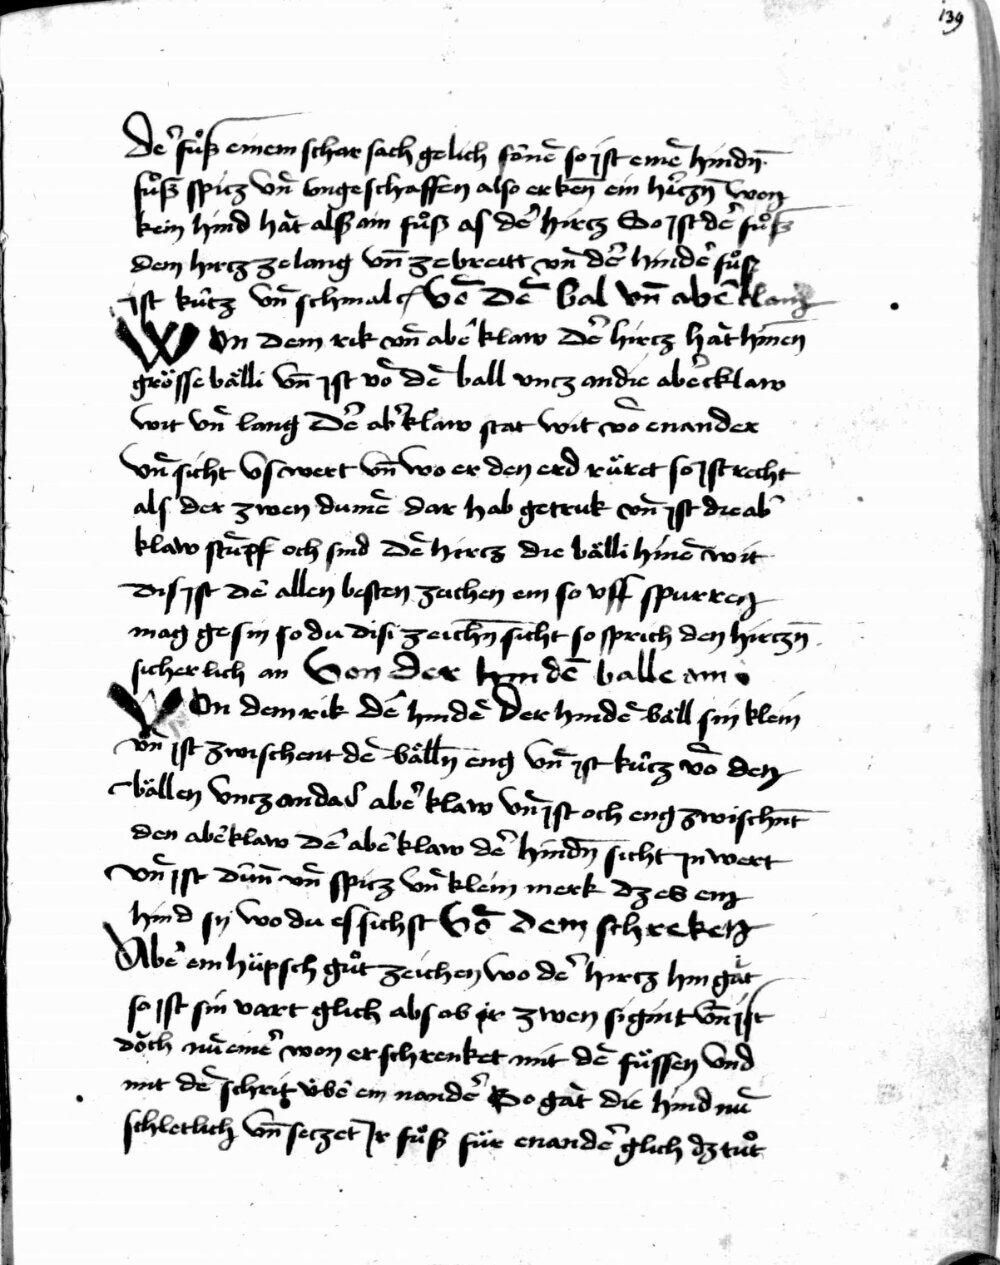 139
De᷑ fuͦß einem schar sach gelich sōnē so jst einē hindn̄
fuͦß spicz vn̄ vngeschaffen also erken̄ ein hirczn̄ won
kein hind hāt alß ain fuͦß as de᷑ hircz So ist de᷑ fuͦß
dem hircz ze lang vn̄ ze breitt vn̄ de᷑ hinde᷑ fuͦß
ist kürcz vn̄ schmal vō dē bal vn̄ abe᷑klaw
Won dem rik vn̄ abe᷑ klaw De᷑ hircz hāt hinen
grösse bälli vn̄ jst vō dē ball vncz an die abe᷑cklaw
wit vn̄ lang De᷑ ab᷑klaw stat wit vō enander
vn̄ sicht vswert vn̄ wo er den erd rüret so jst recht
als der zwen dumē dar hab getruk vn̄ jst die ab᷑
klaw stūpf och sind dē hircz die bälli hinē wit
dis jst dē allen besten zeichen ein so vff spurren
mag gesin so du disi zeichn̄ sicht so sprich den hirczn̄
sicherlich an Von der hindē balle ain
Von dem rik dē hindē Der hindē bäll sin klein
vn̄ ist zwischent dē bälln̄ eng vn̄ ist kürcz vō den
bällen vncz an da᷑ abe᷑ klaw vn̄ jst och eng zwischn̄t
den abe᷑klaw dē abe᷑klaw de᷑ hindn̄ sicht jn wert
vn̄ jst dün̄ vn̄ spicz vn̄ klein merk dz es ein
hind sy wo du es sichst Vō dem schreken
Abe᷑ ein hüpsch guͦt zeichen wo de᷑ hircz hin gāt
so ist sin vart glich abs ob ir zwen sigint vn̄ ist
doch nū eine᷑ won er schrenket mit dē füssen vnd
mit dē schrit übe᷑ ein nande᷑ So gāt die hind nū
schletlich vn̄ seczet Jr fuͦß für enande᷑ glich dz tuͦt